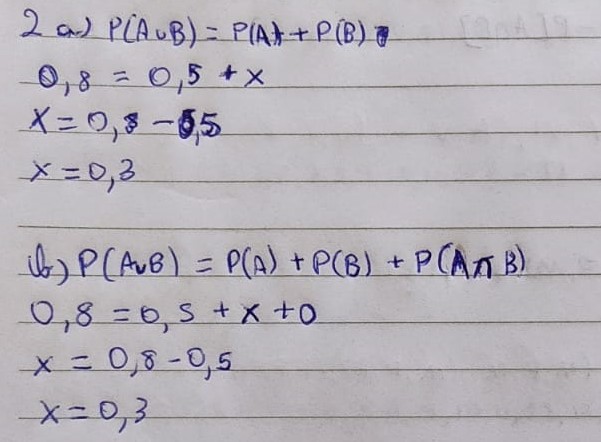 2 a) P(A∪B) = P(A) + P(B)
0,8 = 0,5 + x
x = 0,8 - 0,5
x = 0,3
b) P(A∪B) = P(A) + P(B) + P(A∩B)
0,8 = 0,5 + x + 0
x = 0,8 - 0,5
x = 0,3